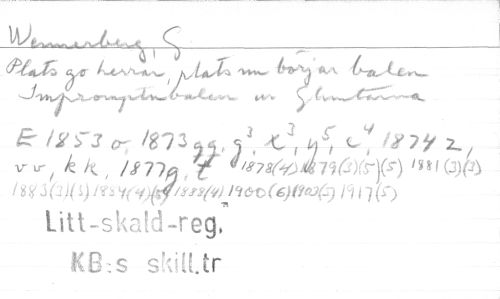 Wennerberg, G
Plats go herrar, plats nu börjar balen
Impromptubalen ur Gluntarna
E 1853 o, 1873 qq, g³, x³, y⁵, c⁴, 1874 z,
vv, kk, 1877g, t 1878(4) 1879(3)(5)(5) 1881(3)(3)
1883(3)(3) 1884(4)(5) 1888(4) 1900(6) 1902(5) 1917(5)
Litt-skald-reg.
KB:s skill.tr